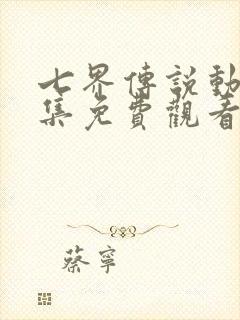 七界傳說動
集免費觀看
蔡寧